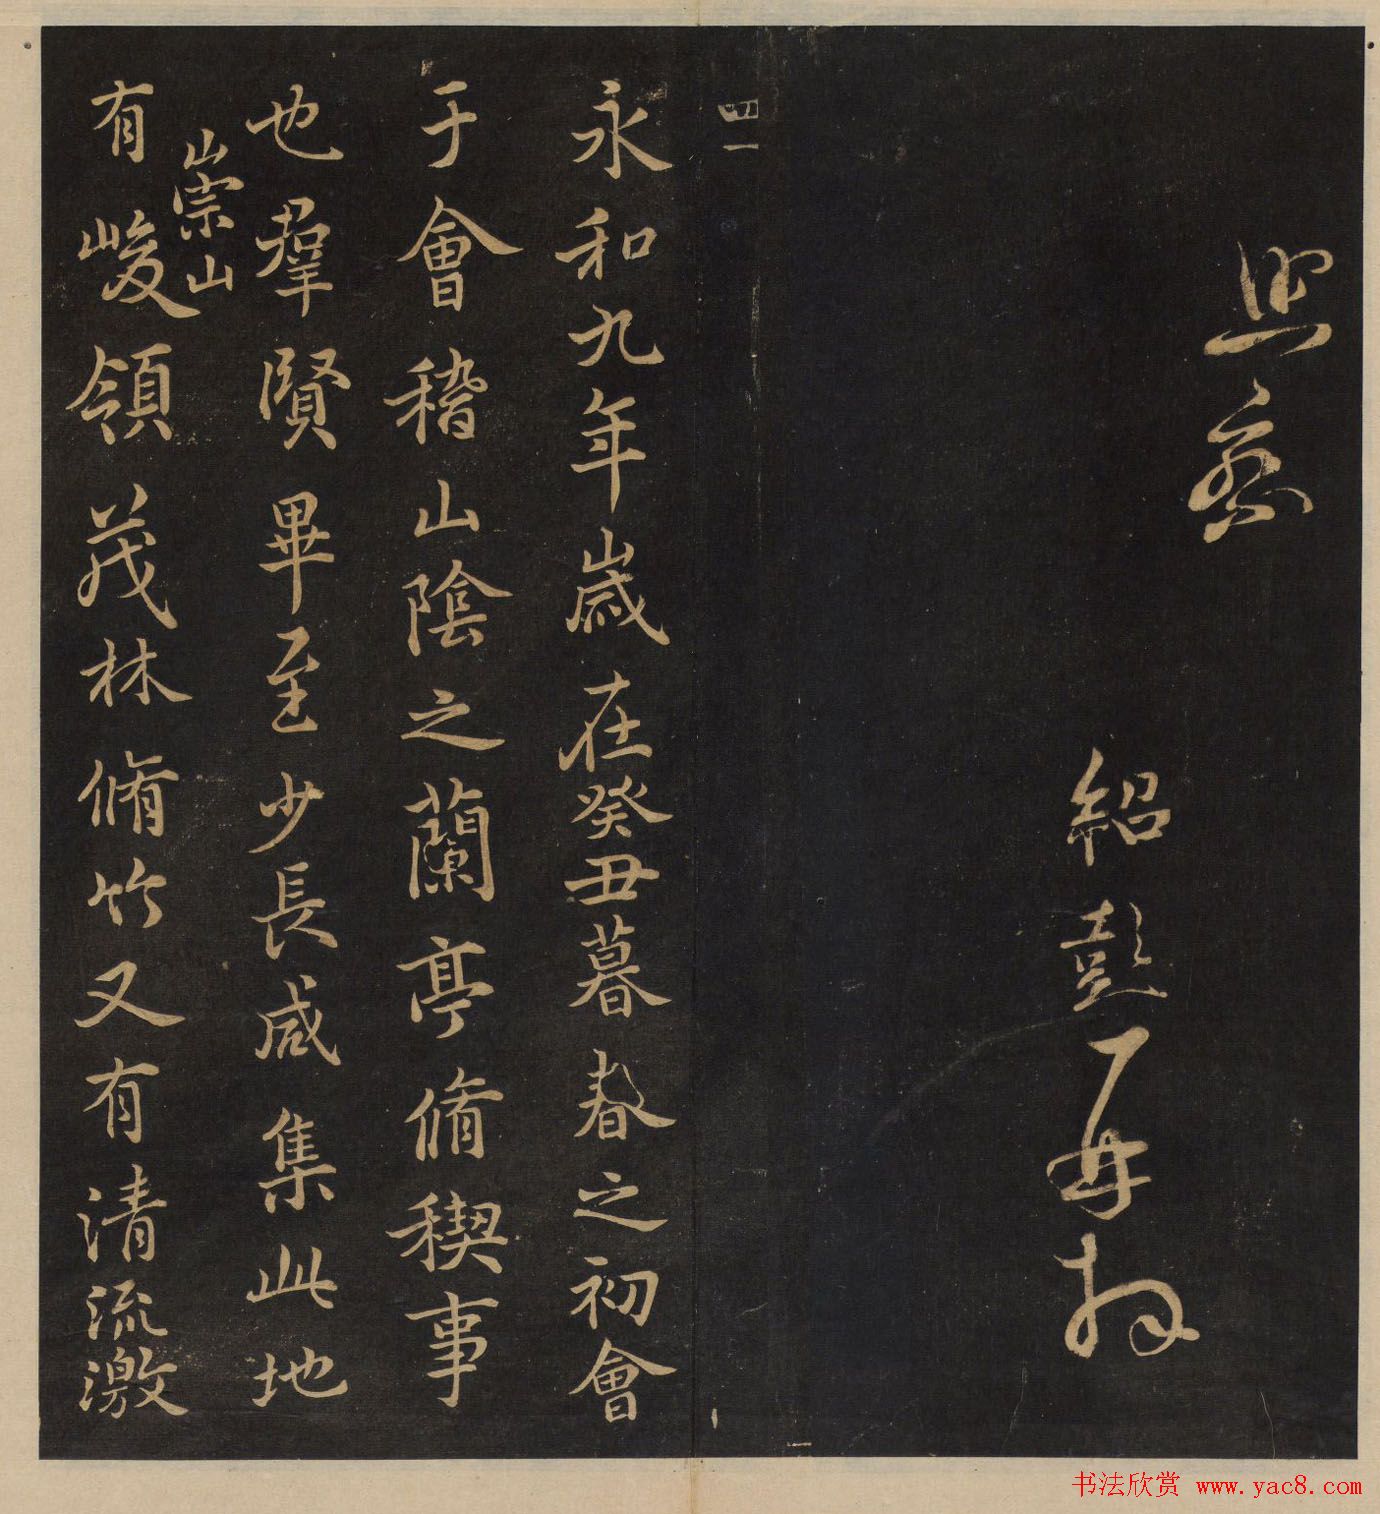 照察
紹彭再拜
四一
永和九年歲在癸丑暮春之初會
于會稽山陰之蘭亭脩稧事
也羣賢畢至少長咸集此地
崇山
有峻領茂林脩竹又有清流激
书法欣赏 www.yac8.com